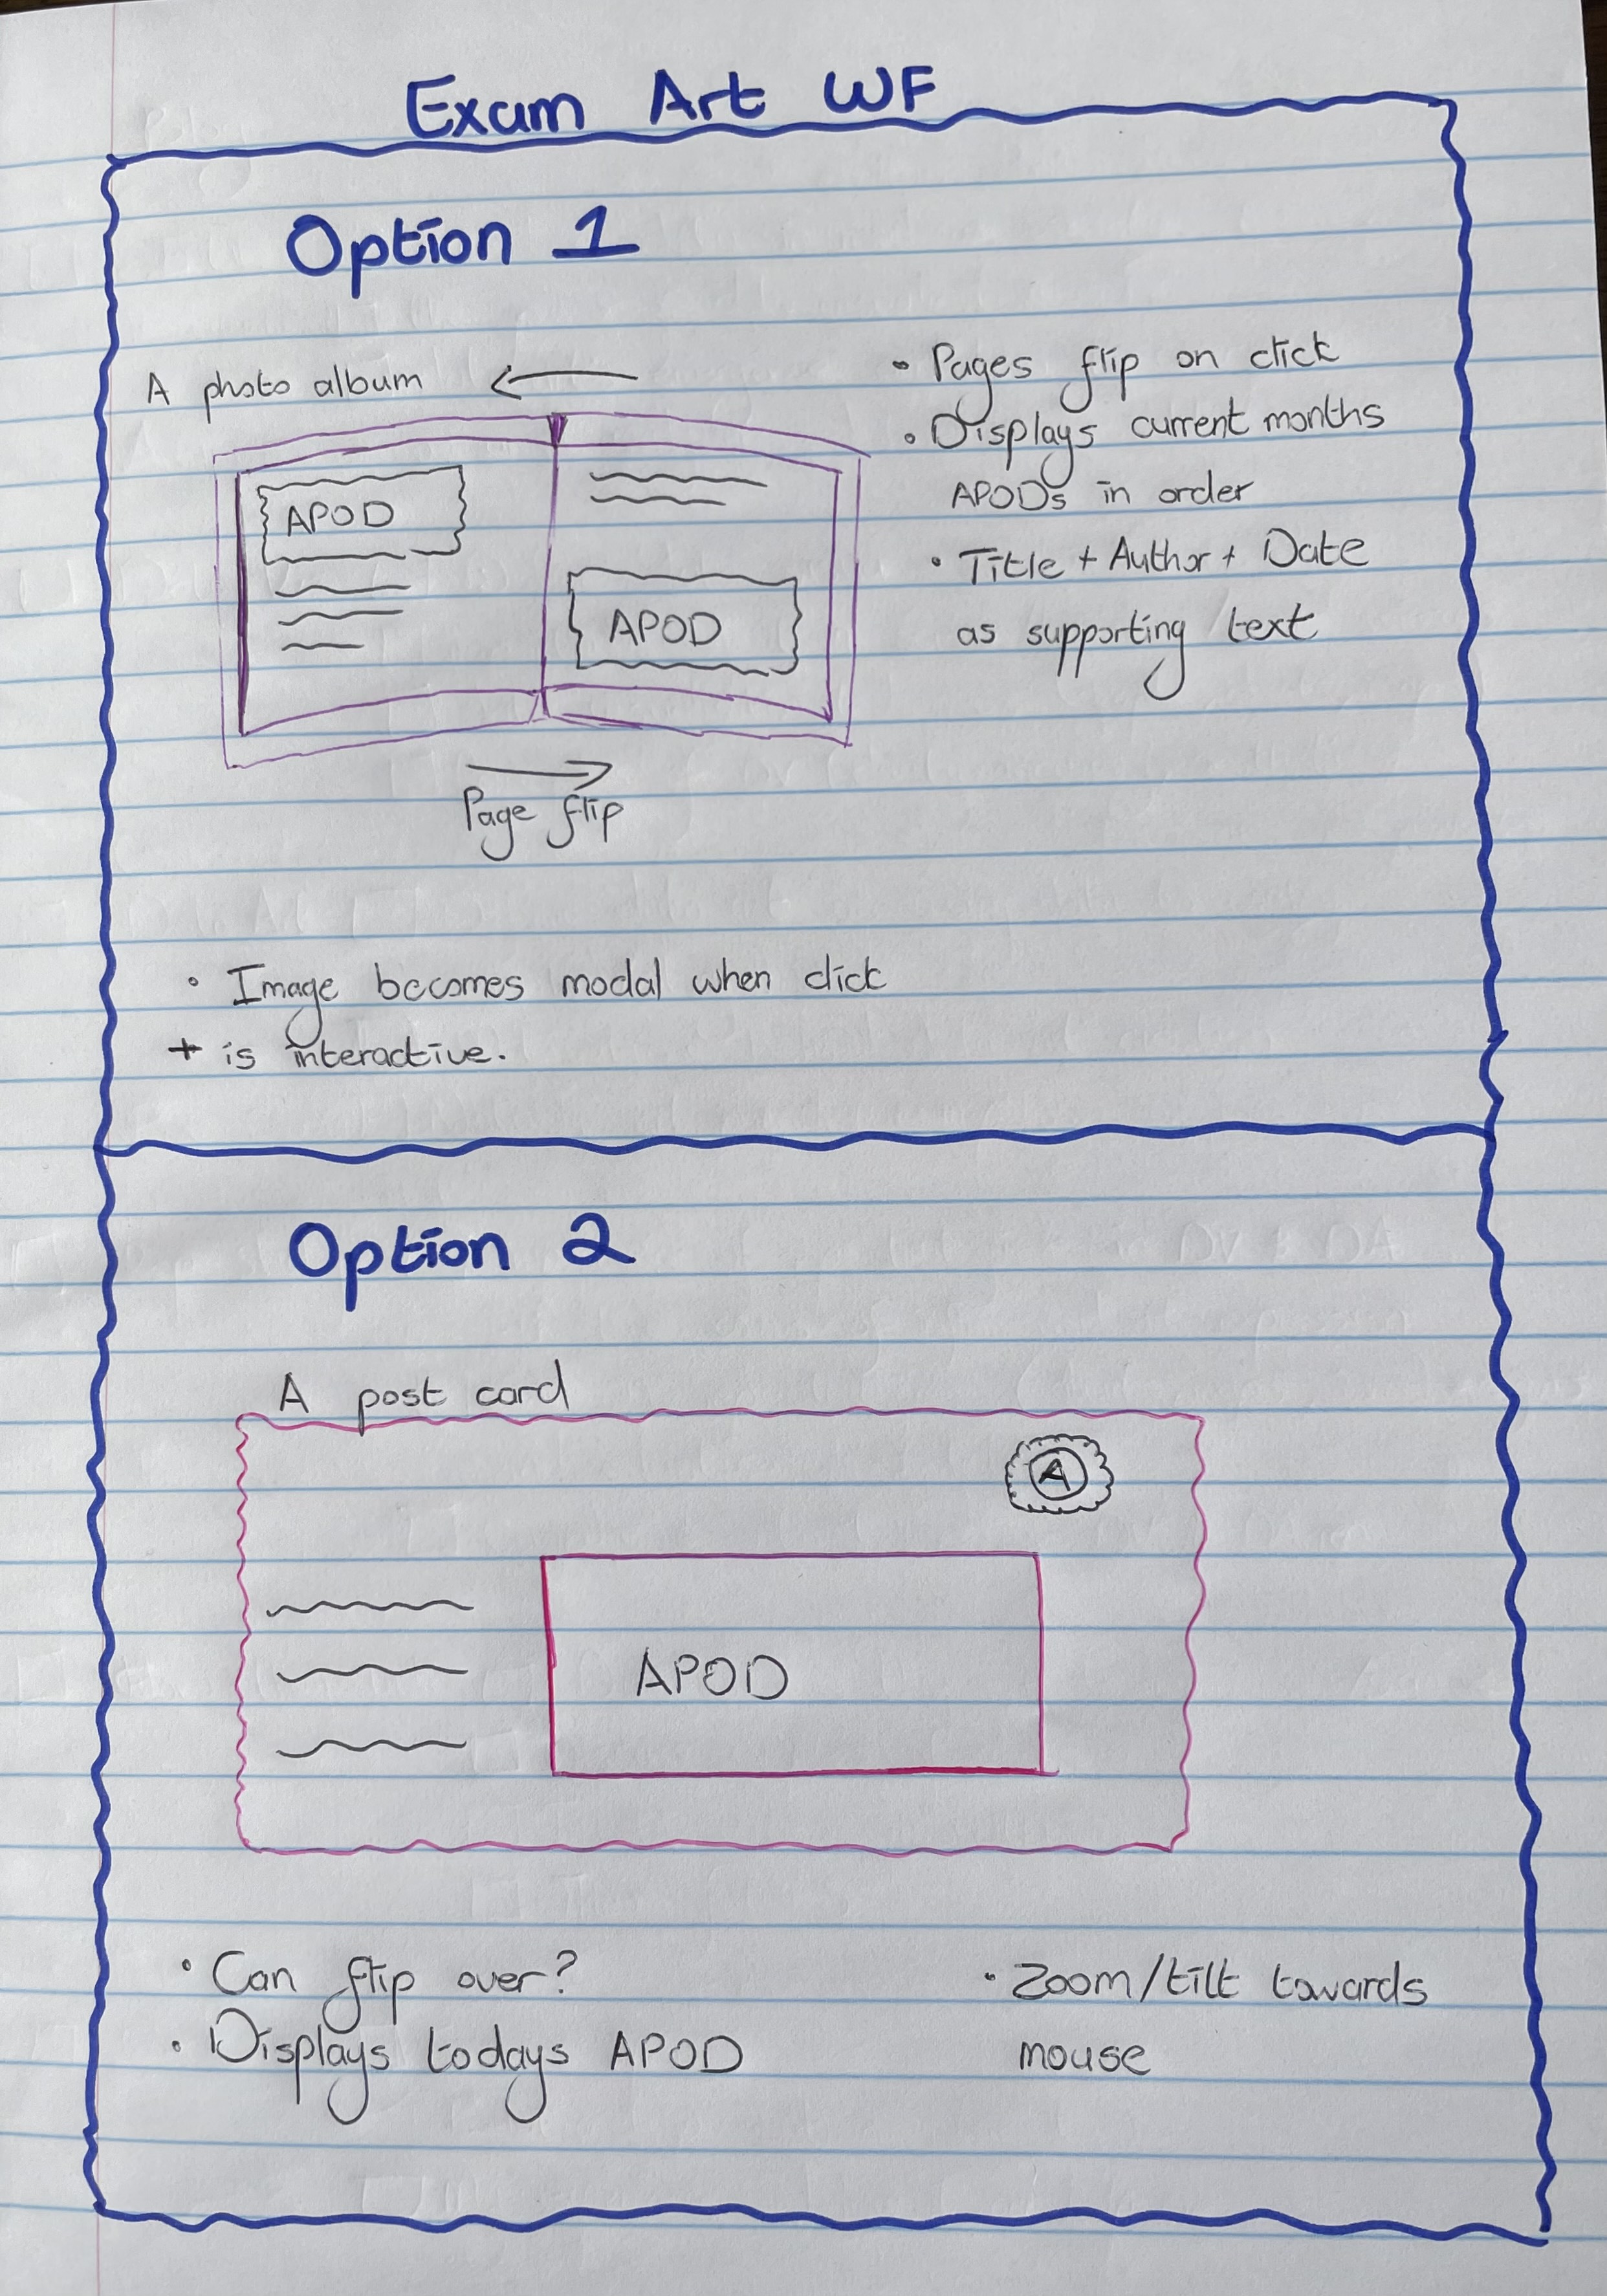 Exam Art WF
Option 1
A photo album
APOD
APOD
Page flip
• Pages flip on click
• Displays current months
APODs in order
• Title + Author + Date
as supporting text
• Image becomes modal when click
+ is interactive.
Option 2
A post card
A
APOD
• Can flip over?
• Displays todays APOD
• Zoom/tilt towards
mouse